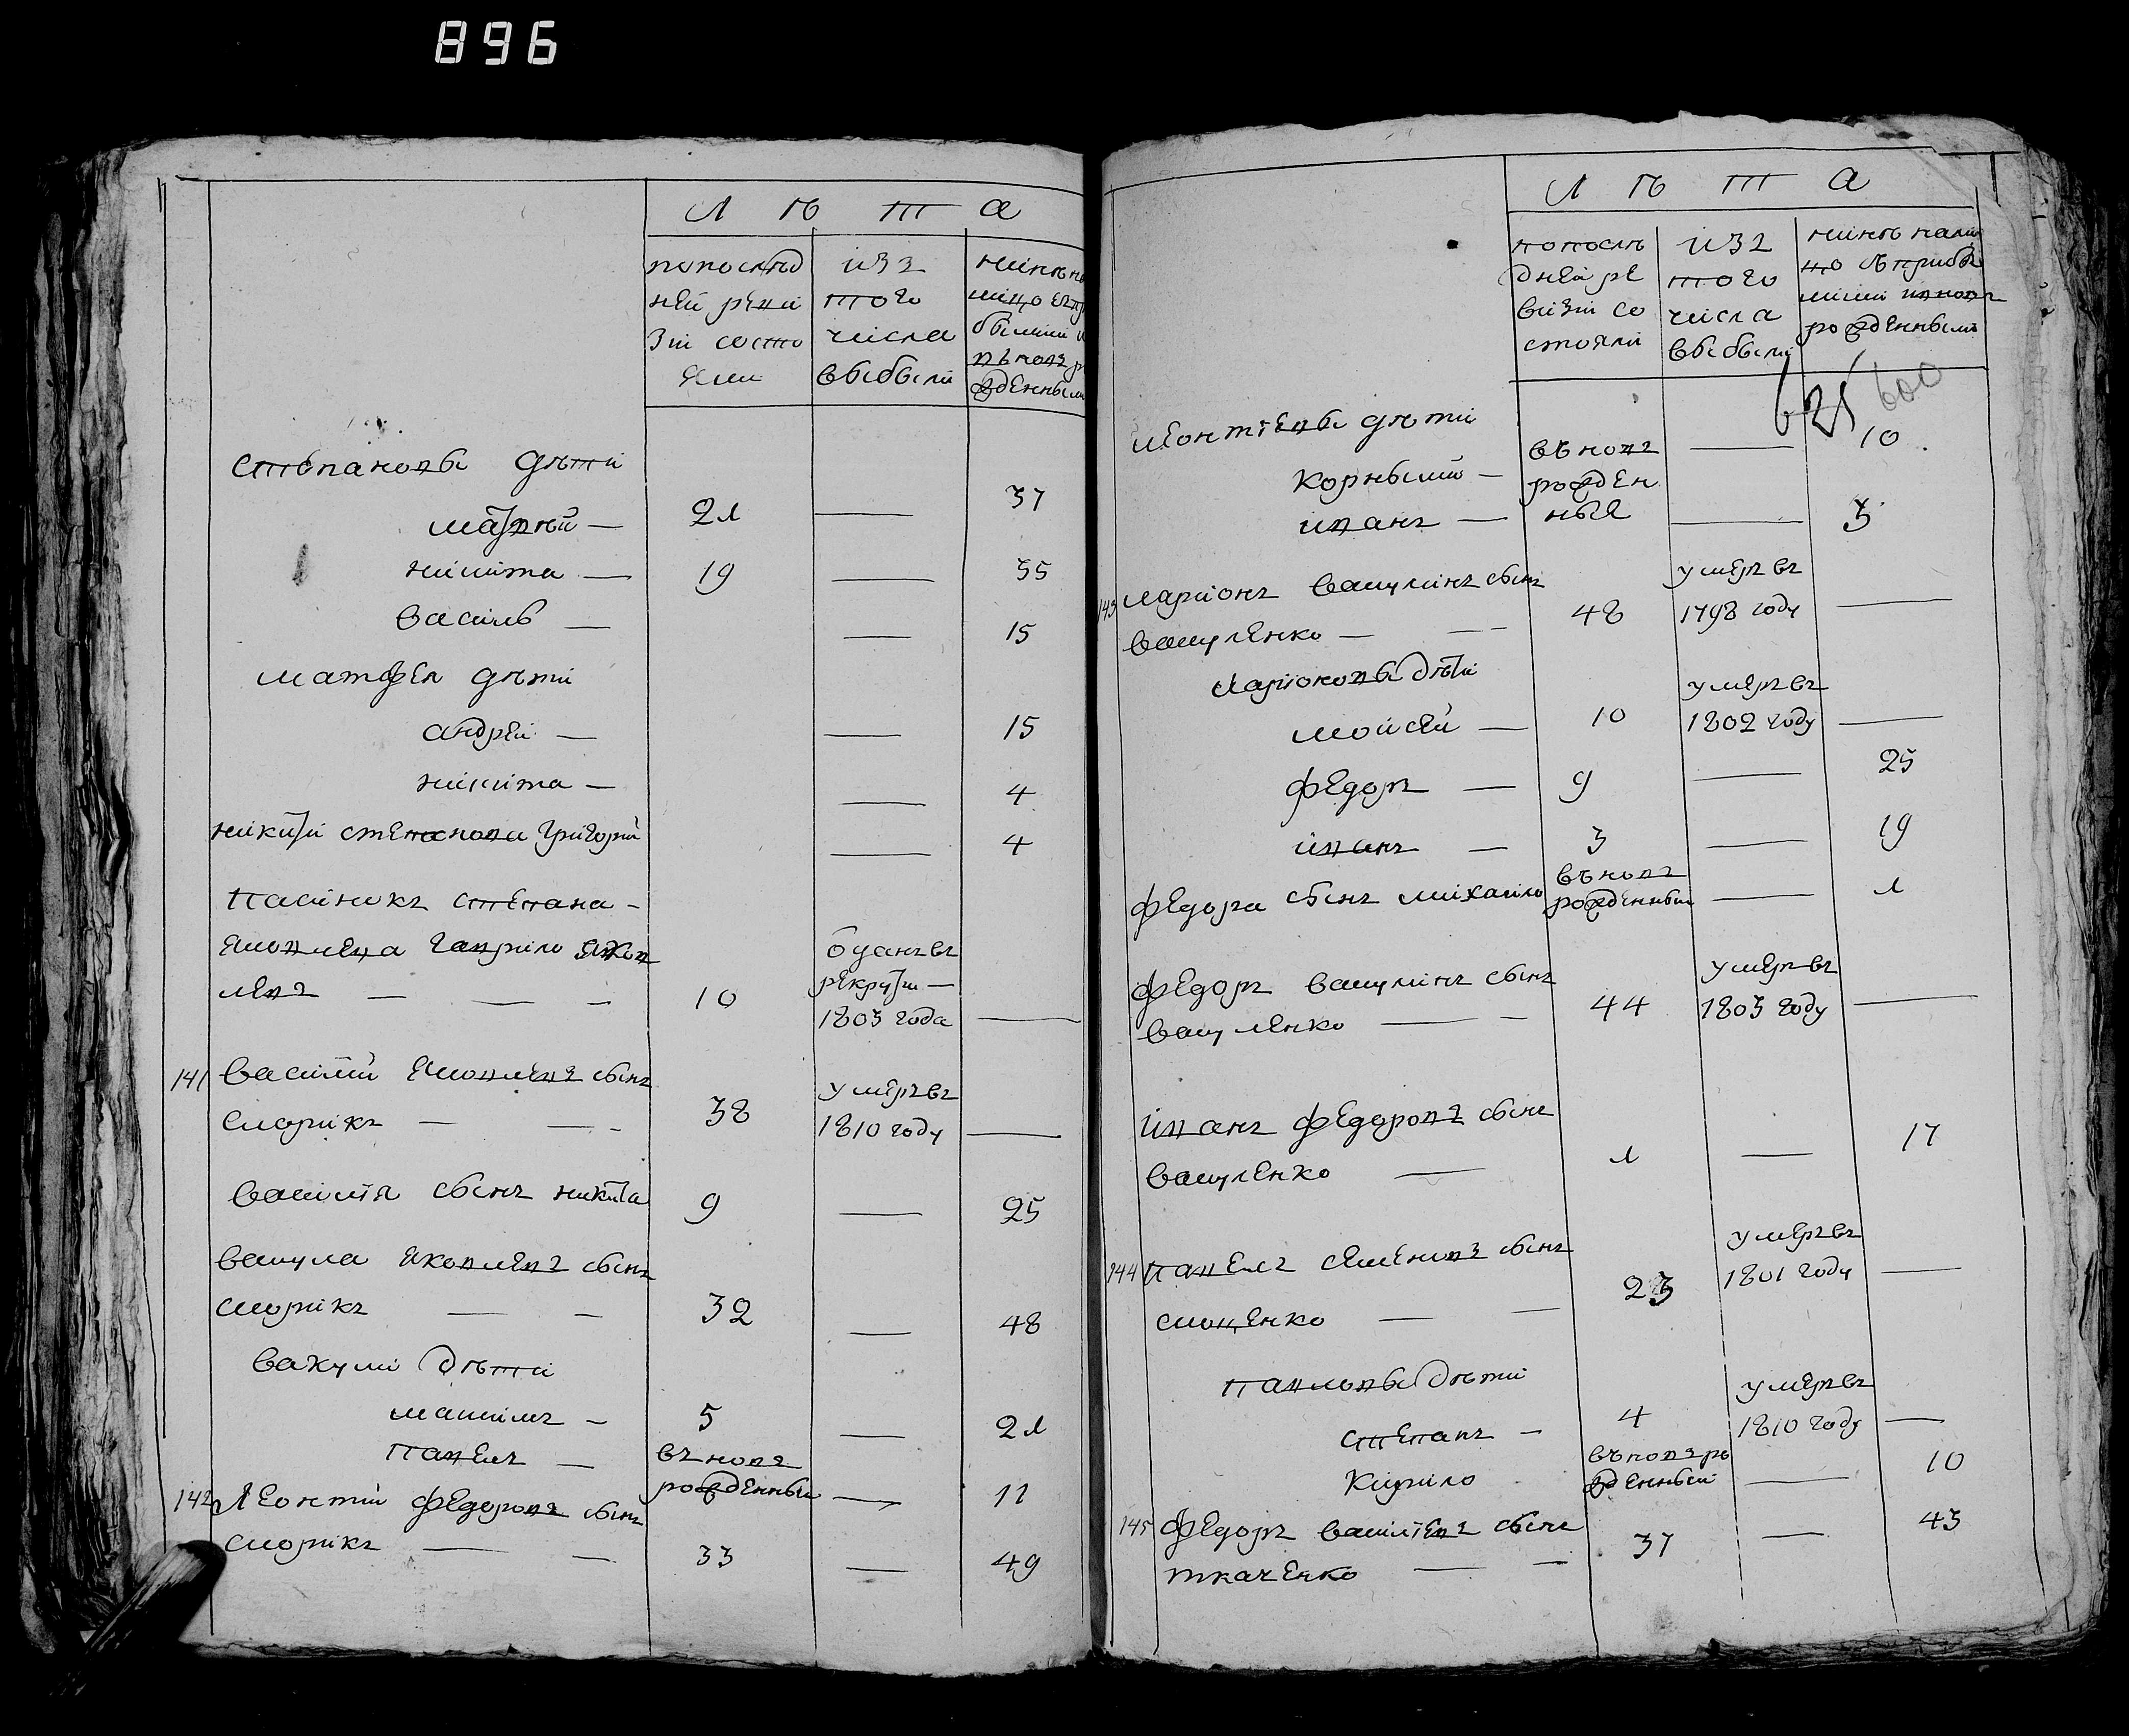 896
Л Ѣ Т А
попослѣд
ней реви
зіи состо
яли
изъ
того
числа
выбыли
Степановы дѣти
Матвѣй — 21 — 37
Никита — 19 — 35
Василь — — 15
Матфея дѣти
Андрей — — 15
Никита — — 4
Никити Степанова Григорій — 4
Пасинокъ Степана —
Яковлева Гаврило Яков
левъ — — — 10
отданъ въ
рекруты —
1803 года —
141 Василій Яковлевъ сынъ
Скорикъ — — 38
умеръ въ
1810 году —
Василія сынъ Никита 9 — 25
Вакула Яковлевъ сынъ
Скорикъ — — 32 — 48
Вакули дѣти
Максимъ — 5 — 21
Павелъ —
въновъ
рожденный — 11
142 Леонтій Федоровъ сынъ
Скорикъ — — 33 — 49
Л Ѣ Т А
попослѣ
дней ре
визіи со
стояли
изъ
того
числа
выбыли
нинѣ нали
цо съ прибы
лими и вновь
рожденными
625 600
Леонтіевы дѣти
Корнылій —
Иванъ —
въновъ
рожден
ныя
— 10
— 3
143 Ларіонъ Вакулинъ сынъ
Вакуленко — — 48
умеръ въ
1798 году —
Ларіоновы дѣти
Мойсей — 10
умеръ въ
1802 году —
Федоръ — 9 — 25
Иванъ — 3 — 19
Федора сынъ Михайло
въновъ
рожденный — 1
Федоръ Вакулинъ сынъ
Вакуленко — — 44
умеръ въ
1803 году —
Иванъ Федоровъ сынъ
Вакуленко — 1 — 17
144 Павелъ Семеновъ сынъ
— — 23
умеръ въ
1801 году —
Павловы дѣти
Степанъ — 4
умеръ въ
1810 году —
Кирило
въновъ ро
жденный — 10
145 Федоръ Василіевъ сынъ
Ткаченко — — 37 — 43